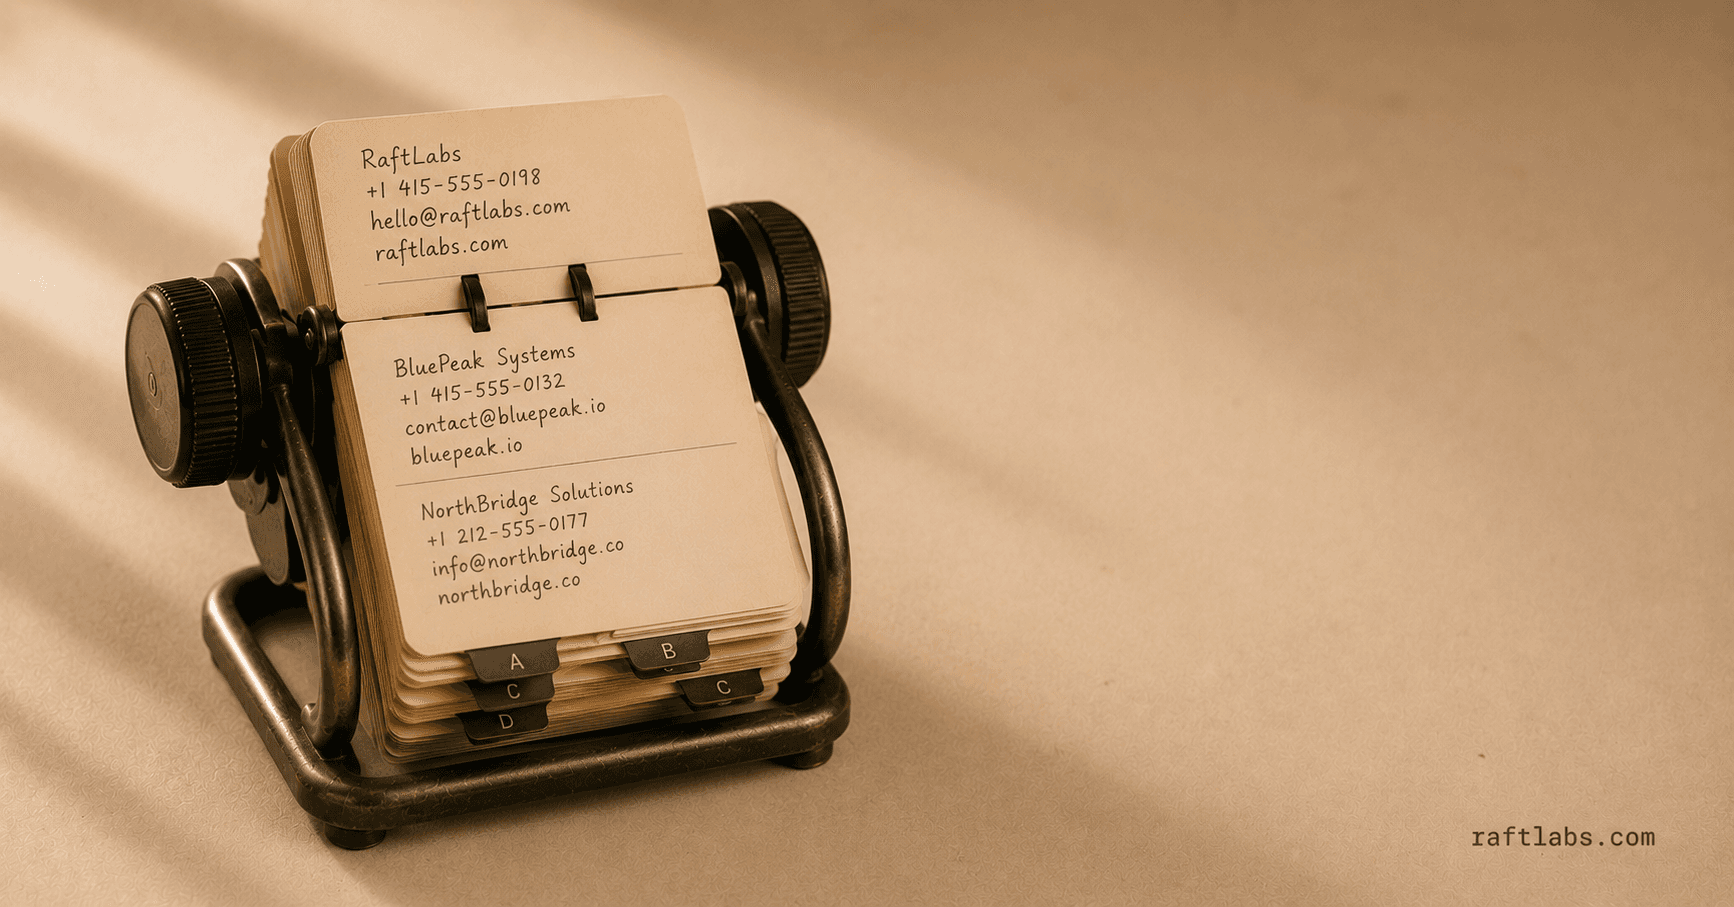 RaftLabs
+1 415-555-0198
hello@raftlabs.com
raftlabs.com
BluePeak Systems
+1 415-555-0132
contact@bluepeak.io
bluepeak.io
NorthBridge Solutions
+1 212-555-0177
info@northbridge.co
northbridge.co
A
B
C
C
D
raftlabs.com